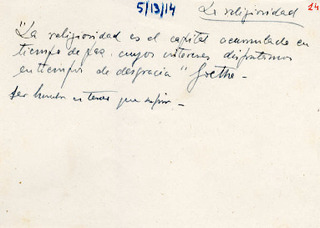 5/13/14 La religiosidad 24
"La religiosidad es el capital acumulado en
tiempo de paz. cuyos intereses disfrutamos
en tiempos de desgracia" Goethe -